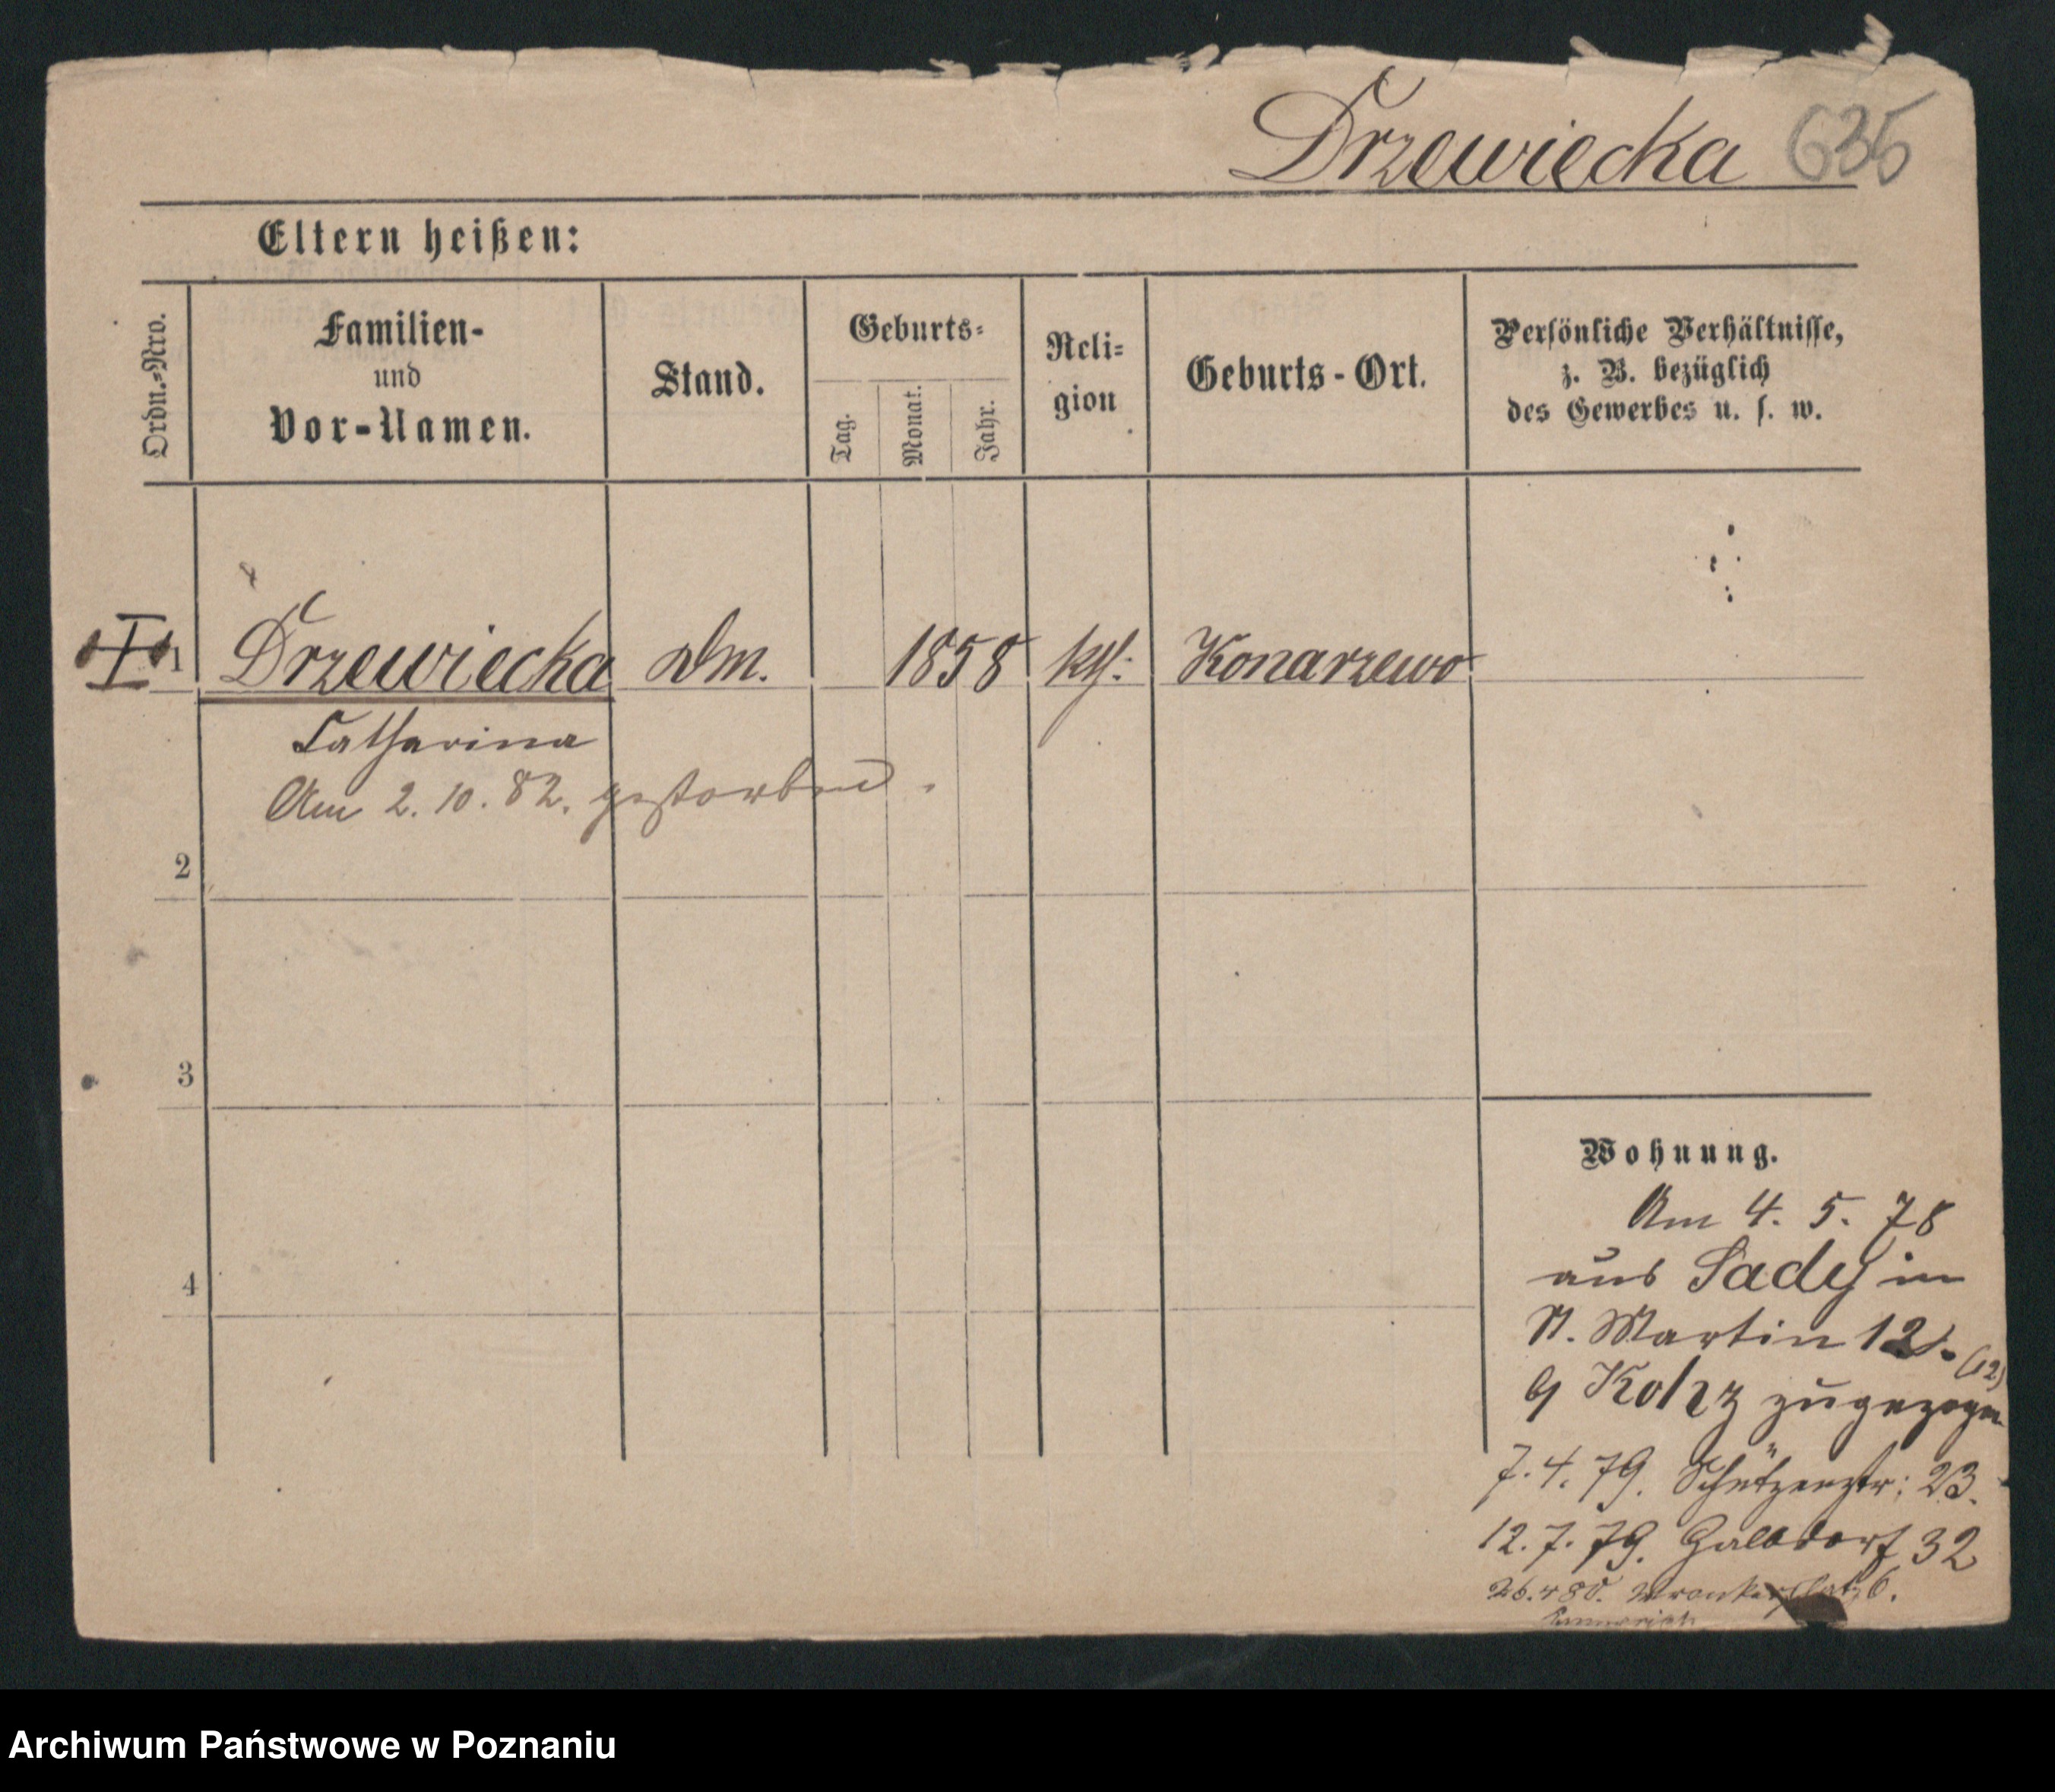 Drzewiecka 635
Eltern heißen:
Ordn.-Nro.
Familien-
und
Vor-Namen.
Stand.
Geburts-
Tag.
Monat.
Jahr.
Reli-
gion
Geburts-Ort.
Persönliche Verhältnisse,
z. B. bezüglich
des Gewerbes u. s. w.
I 1 Drzewiecka Dm. 1858 kth. Konarzewo
Catharina
Am 2. 10. 82. gestorben.
2
3
4
Wohnung.
Am 4. 5. 78
aus Sady in
St. Martin 12
(12)
zugezogen
7. 4. 79. Schützenstr: 23.
12. 7. 79. Halbdorf 32
26. 4 80. 6.
Archiwum Państwowe w Poznaniu